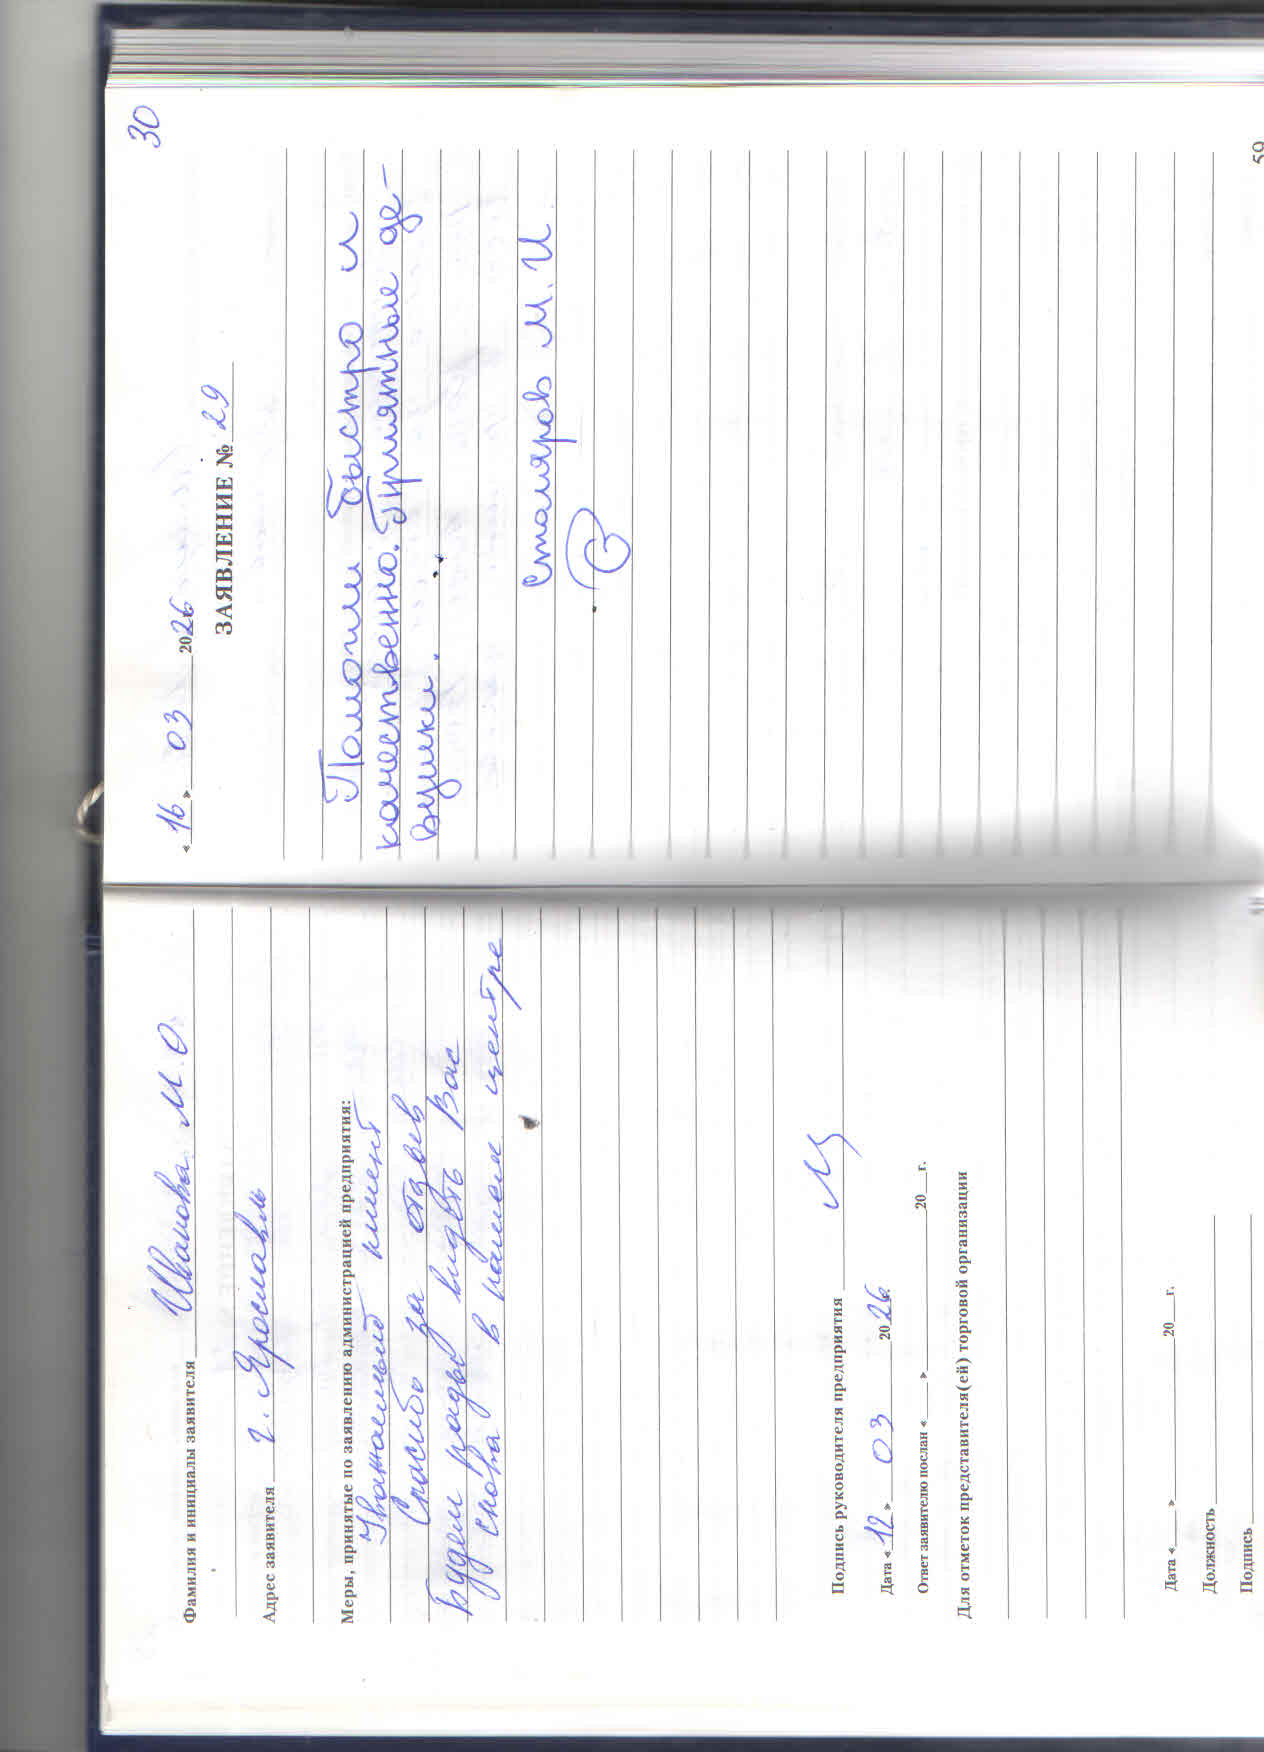 Фамилия и инициалы заявителя Иванова М.О
Адрес заявителя г. Ярославль
Меры, принятые по заявлению администрацией предприятия:
Уважаемый клиент
Спасибо за отзыв
Будем рады видеть Вас
снова в нашем центре
Подпись руководителя предприятия
Дата « 12 » 03 2026г.
Ответ заявителю послан « » 20 г.
Для отметок представителя(ей) торговой организации
Дата « » 20 г.
Должность
Подпись
30
« 16 » 03 2026
ЗАЯВЛЕНИЕ № 29
Помогли быстро и
качественно. Приятные де-
вушки.
Столяров М.И
59